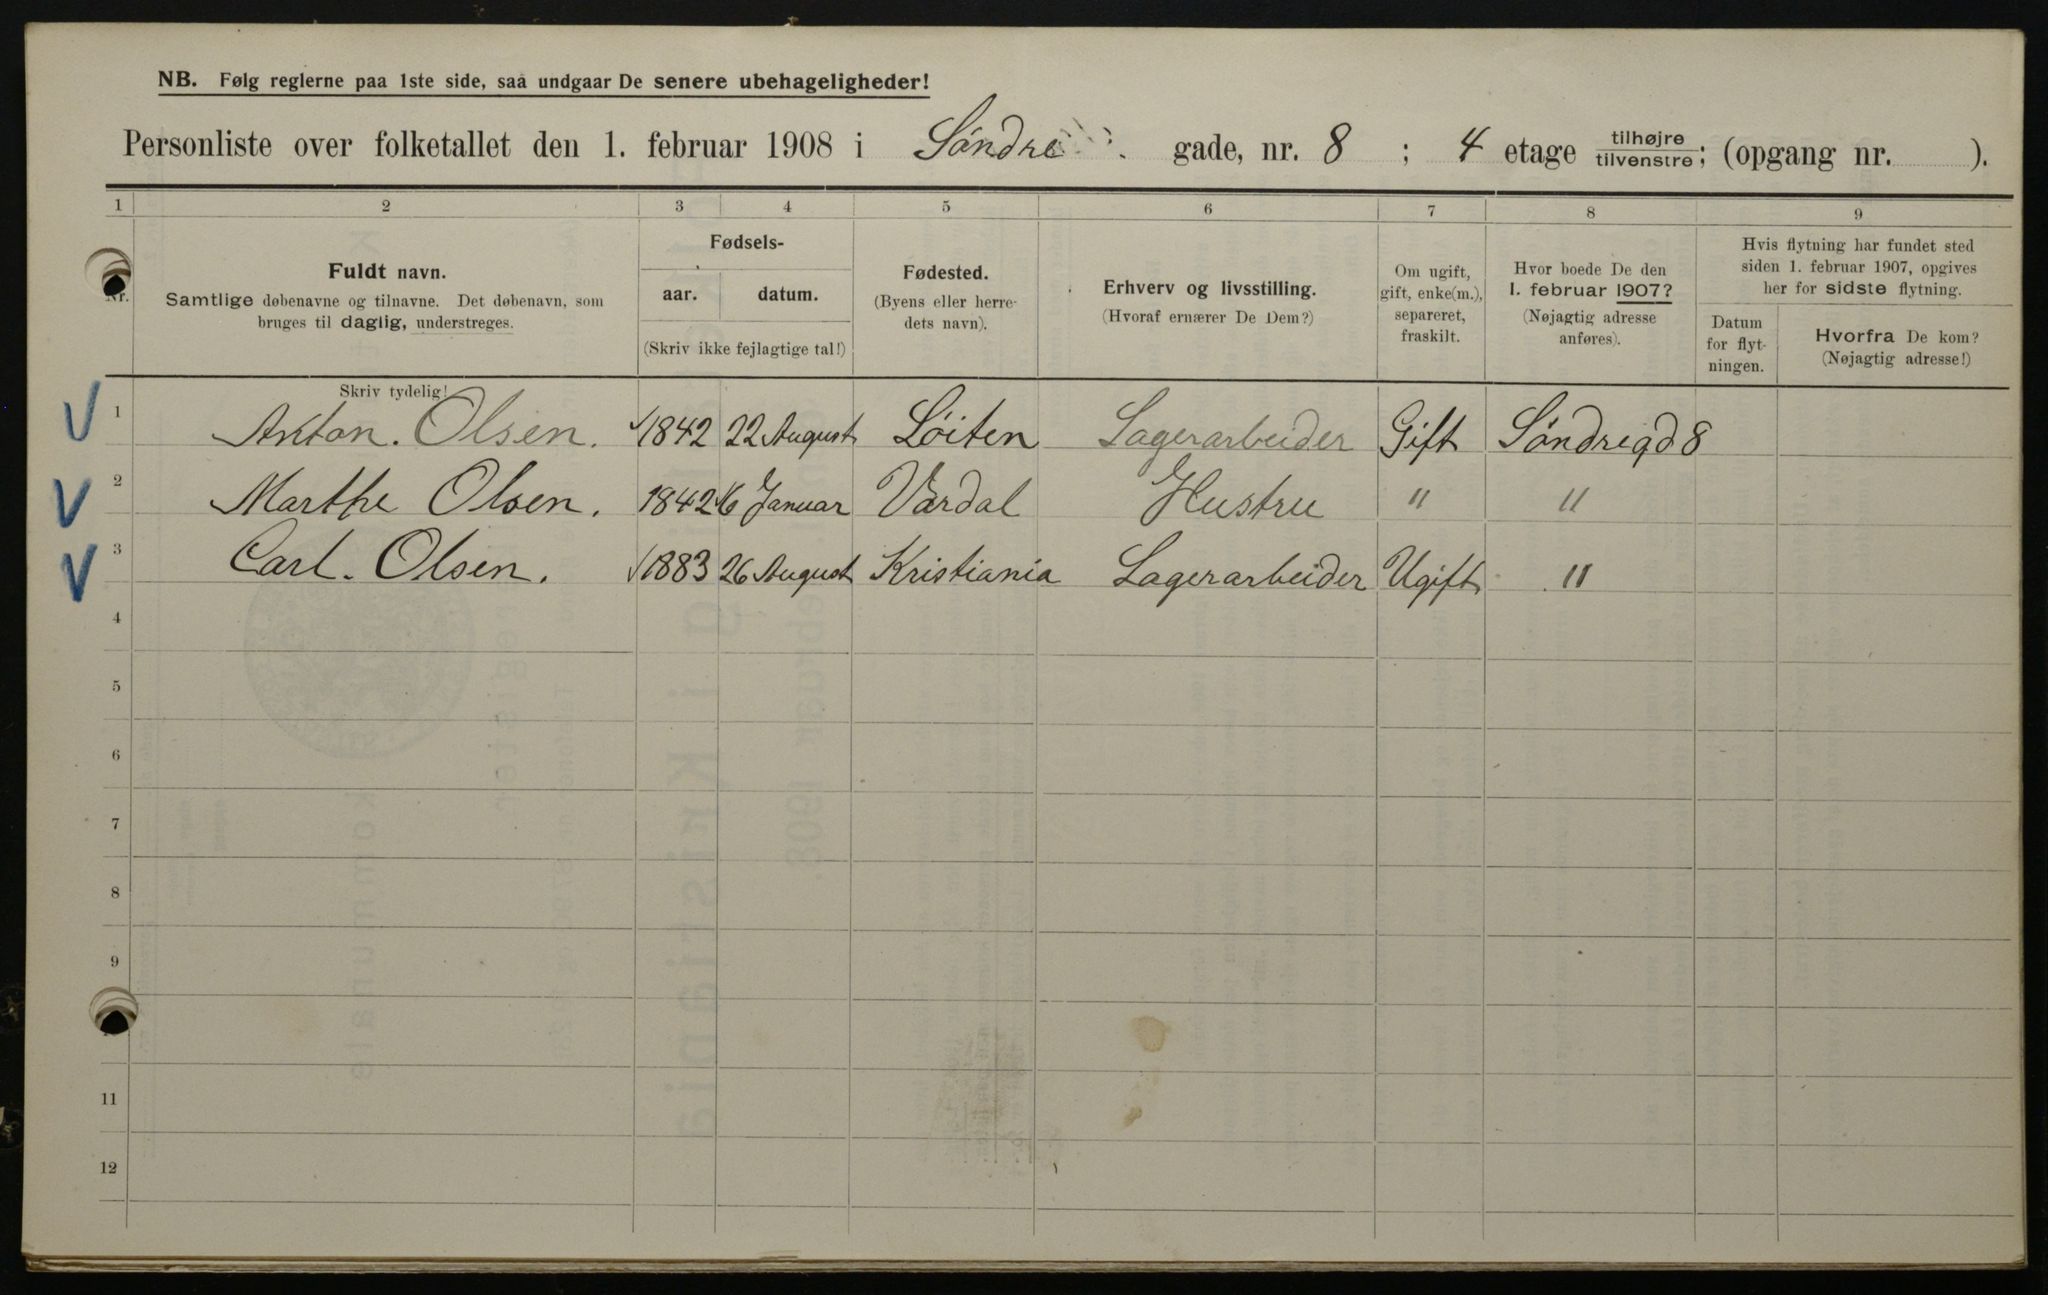 NB. Følg reglerne paa 1ste side, saa undgaar De senere ubehageligheder!
Personliste over folketallet den 1. februar 1908 i Söndre gade, nr. 8 ; 4 etage tilhøjre tilvenstre; (opgang nr. ).
1 2 3 4 5 6 7 8 9
Nr.
Fuldt navn.
Samtlige døbenavne og tilnavne. Det døbenavn, som
bruges til daglig, understreges.
Skriv tydelig!
Fødsels-
aar. datum.
(Skriv ikke fejlagtige tal!)
Fødested.
(Byens eller herre-
dets navn).
Erhverv og livsstilling.
(Hvoraf ernærer De Dem?)
Om ugift,
gift, enke(m.),
separeret,
fraskilt.
Hvor boede De den
1. februar 1907?
(Nøjagtig adresse
anføres).
Hvis flytning har fundet sted
siden 1. februar 1907, opgives
her for sidste flytning.
Datum
for flyt-
ningen.
Hvorfra De kom?
(Nøjagtig adresse!)
1 Anton. Olsen. 1842 22 August Löiten Lagerarbeider Gift Söndregd 8
2 Marthe Olsen. 1842 16 Januar Vardal Hustru " "
3 Carl. Olsen. 1883 26 August Kristiania Lagerarbeider Ugift "
4
5
6
7
8
9
11
12